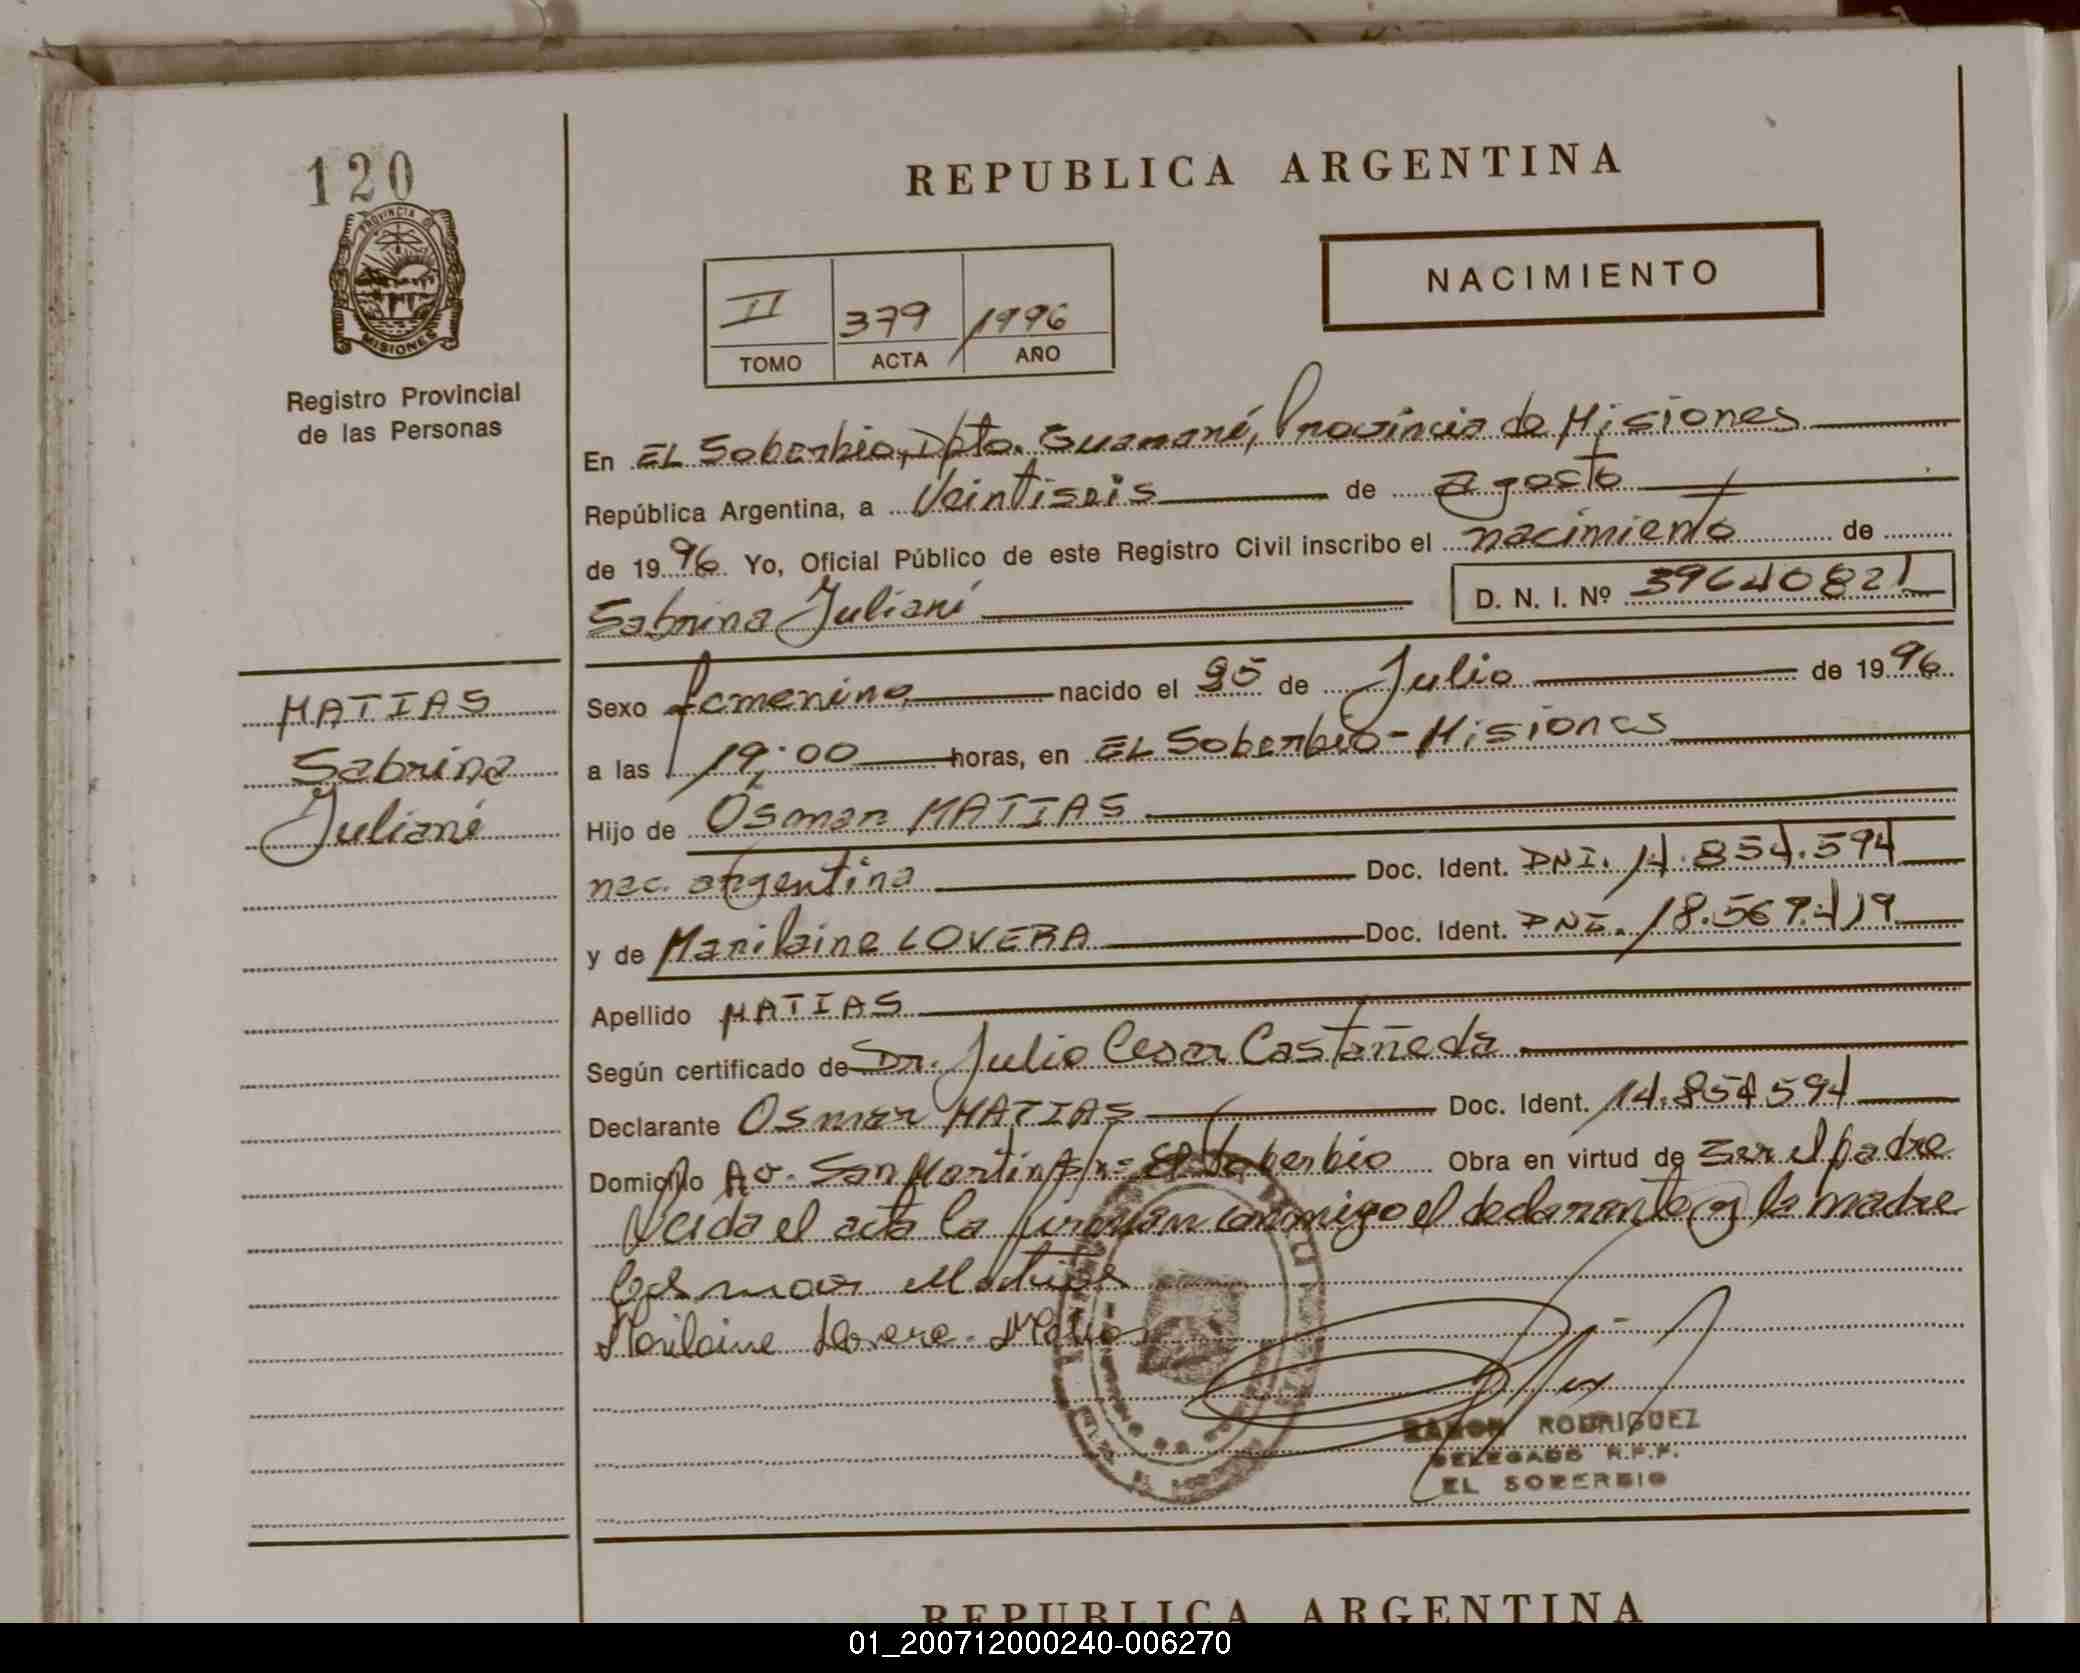 120
PROVINCIA DE
MISIONES
Registro Provincial
de las Personas
REPUBLICA ARGENTINA
NACIMIENTO
II 379 1996
TOMO ACTA AÑO
En EL Soberbio, Dpto. Guaraní, Provincia de Misiones
República Argentina, a Veintiseis de agosto
de 1996 Yo, Oficial Público de este Registro Civil inscribo el nacimiento de
Sabrina Juliani D. N. I. Nº 39640821
MATIAS
Sabrina
Juliani
Sexo femenino nacido el 25 de Julio de 1996
a las 19:00 horas, en EL Soberbio - Misiones
Hijo de Osmar MATIAS
nac. argentina Doc. Ident. DNI. 14.854.594
y de Marilaine LOVERA Doc. Ident. DNI. 18.567.419
Apellido MATIAS
Según certificado de Dr. Julio Cesar Castañeda
Declarante Osmar MATIAS Doc. Ident. 14.854594
Domicilio Av. San Martin s/nº El Soberbio Obra en virtud de ser el padre
Leida el acta la firman conmigo el declarante y la madre
Osmar Matias
Marilaine Lovera
RAMON RODRIGUEZ
DELEGADO R.P.P.
EL SOBERBIO
REPUBLICA ARGENTINA
01_200712000240-006270